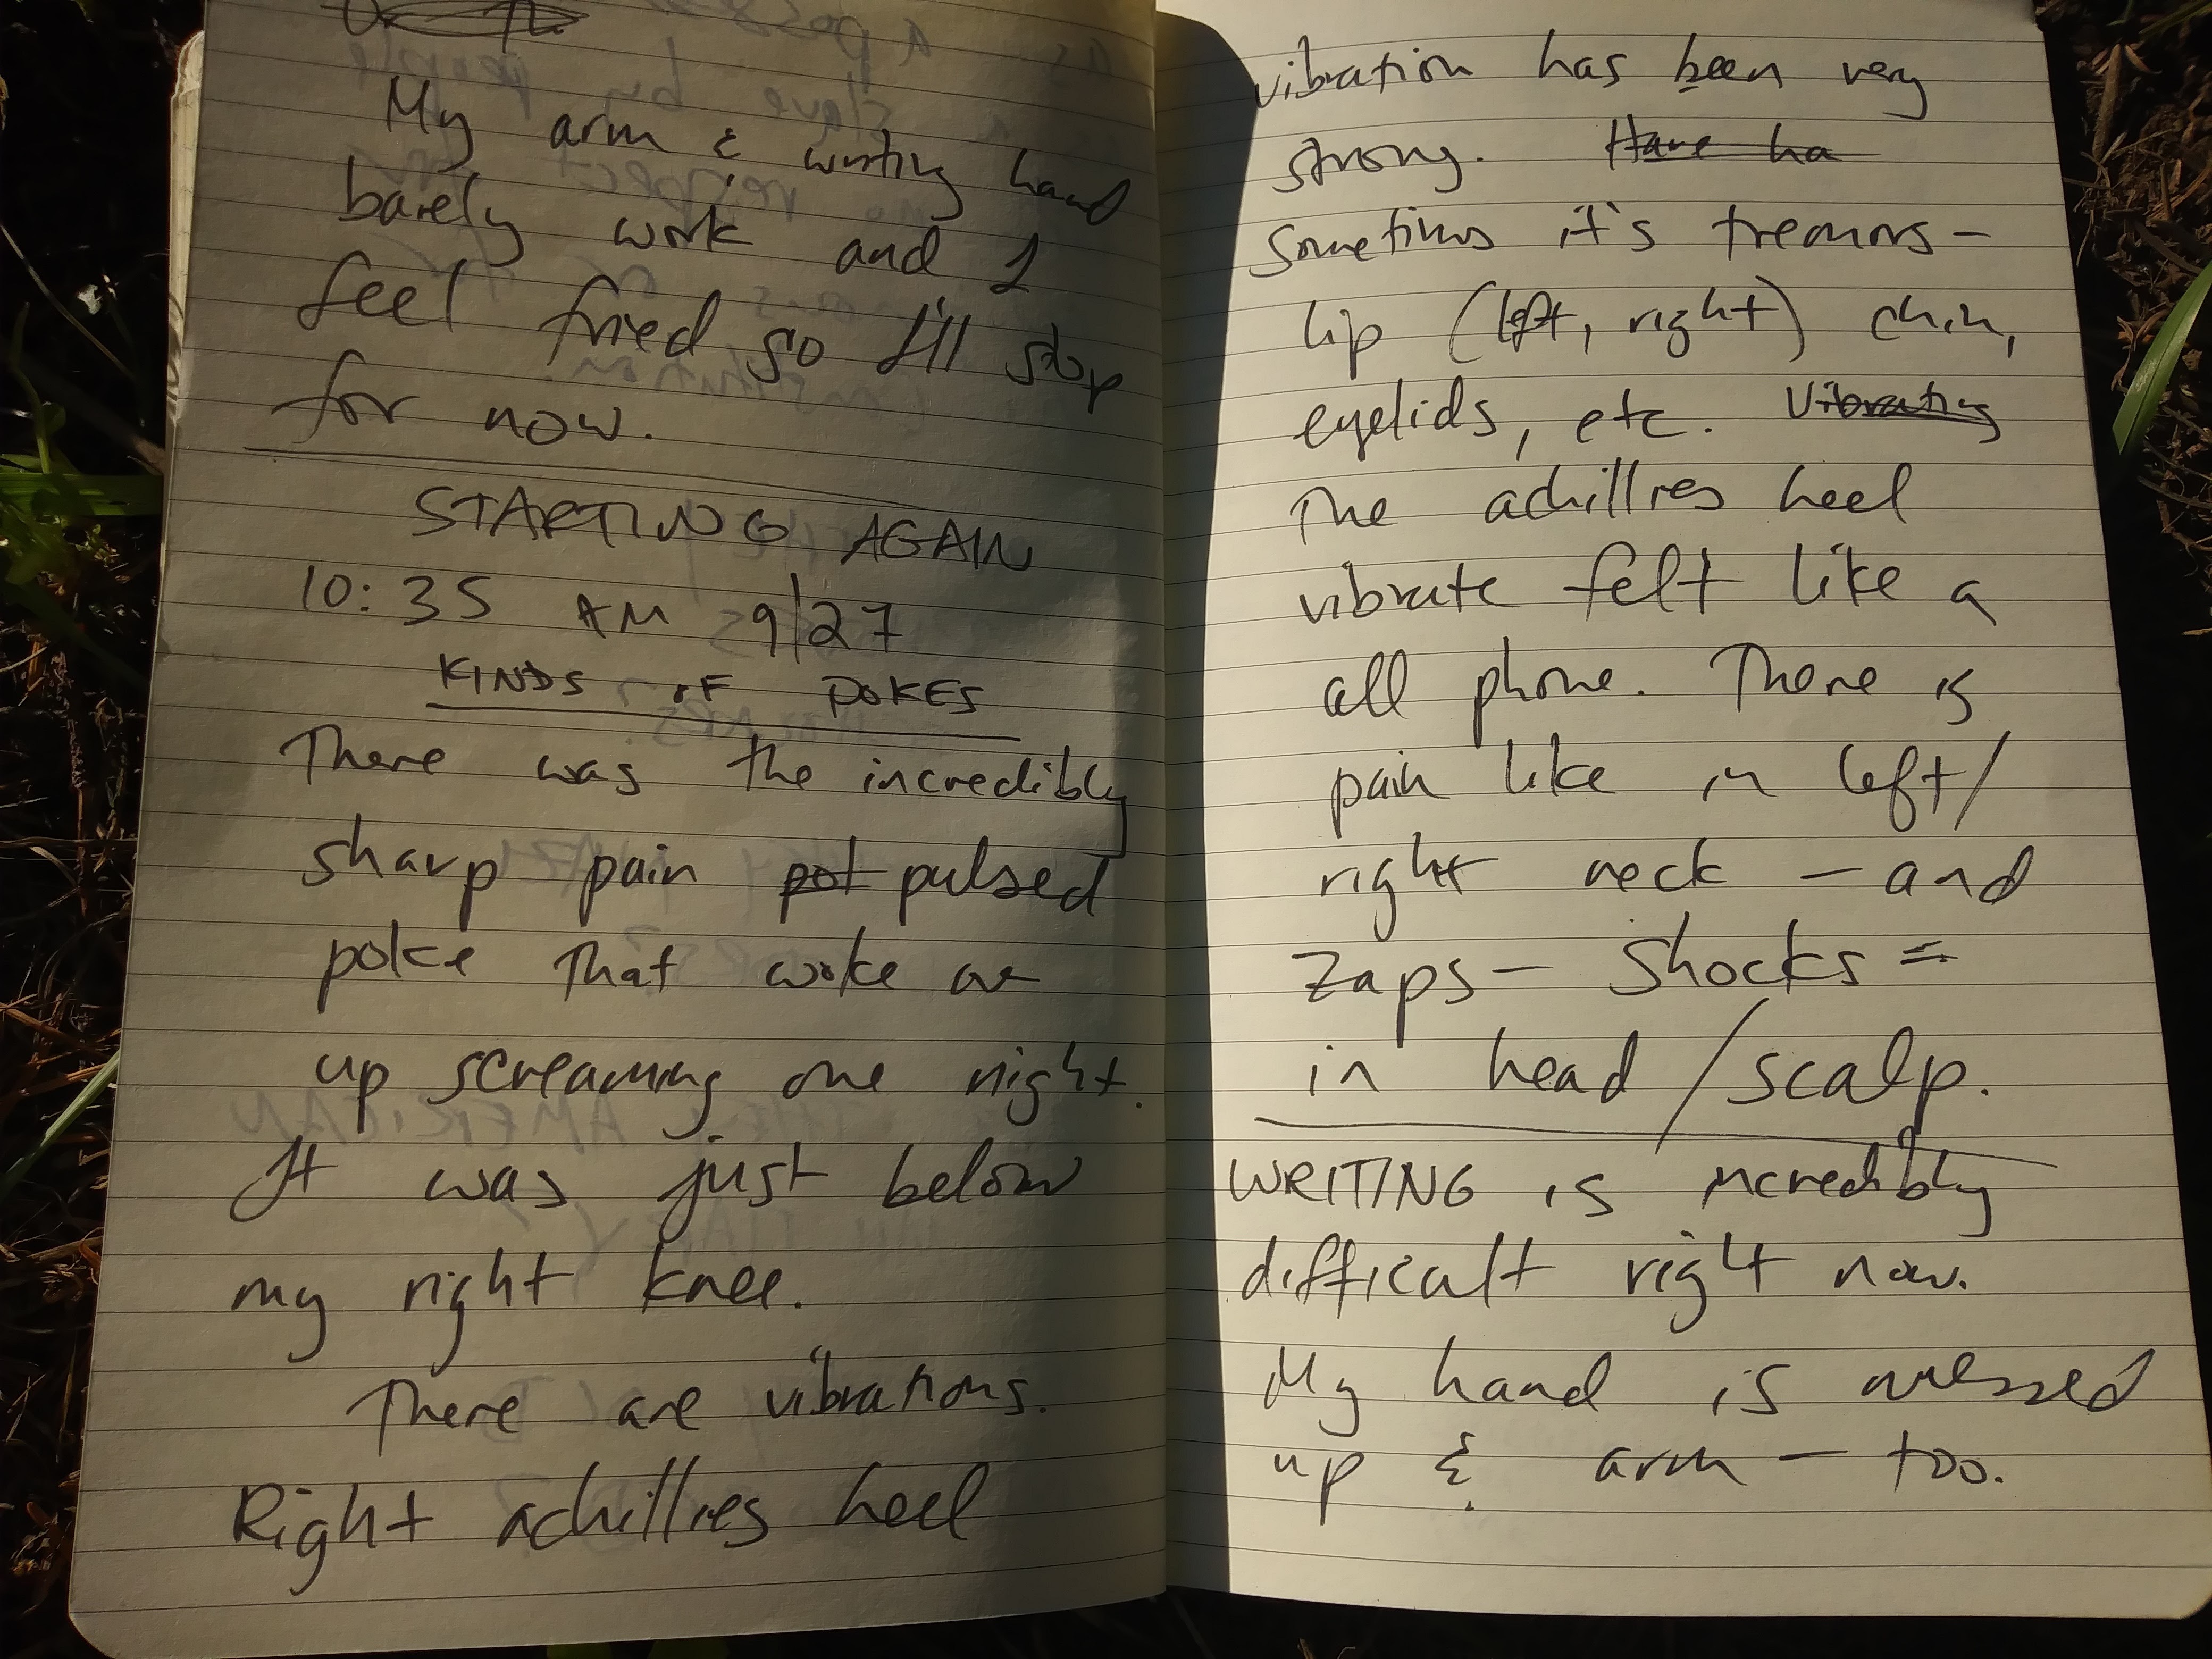 My arm & writing hand
barely work and I
feel fried so I'll stop
for now.
STARTING AGAIN
10:35 AM 9/27
KINDS OF POKES
There was the incredibly
sharp pain pot pulsed
poke that woke me
up screaming one night.
It was just below
my right knee.
There are vibrations.
Right achillies heel
vibration has been very
strong. Have ha
Sometimes it's tremors -
lip (left, right) chin,
eyelids, etc. Vibrating
The achillies heel
vibrate felt like a
cell phone. There is
pain like in left/
right neck - and
zaps - shocks =
in head / scalp.
WRITING is incredibly
difficult right now.
My hand is messed
up & arm - too.